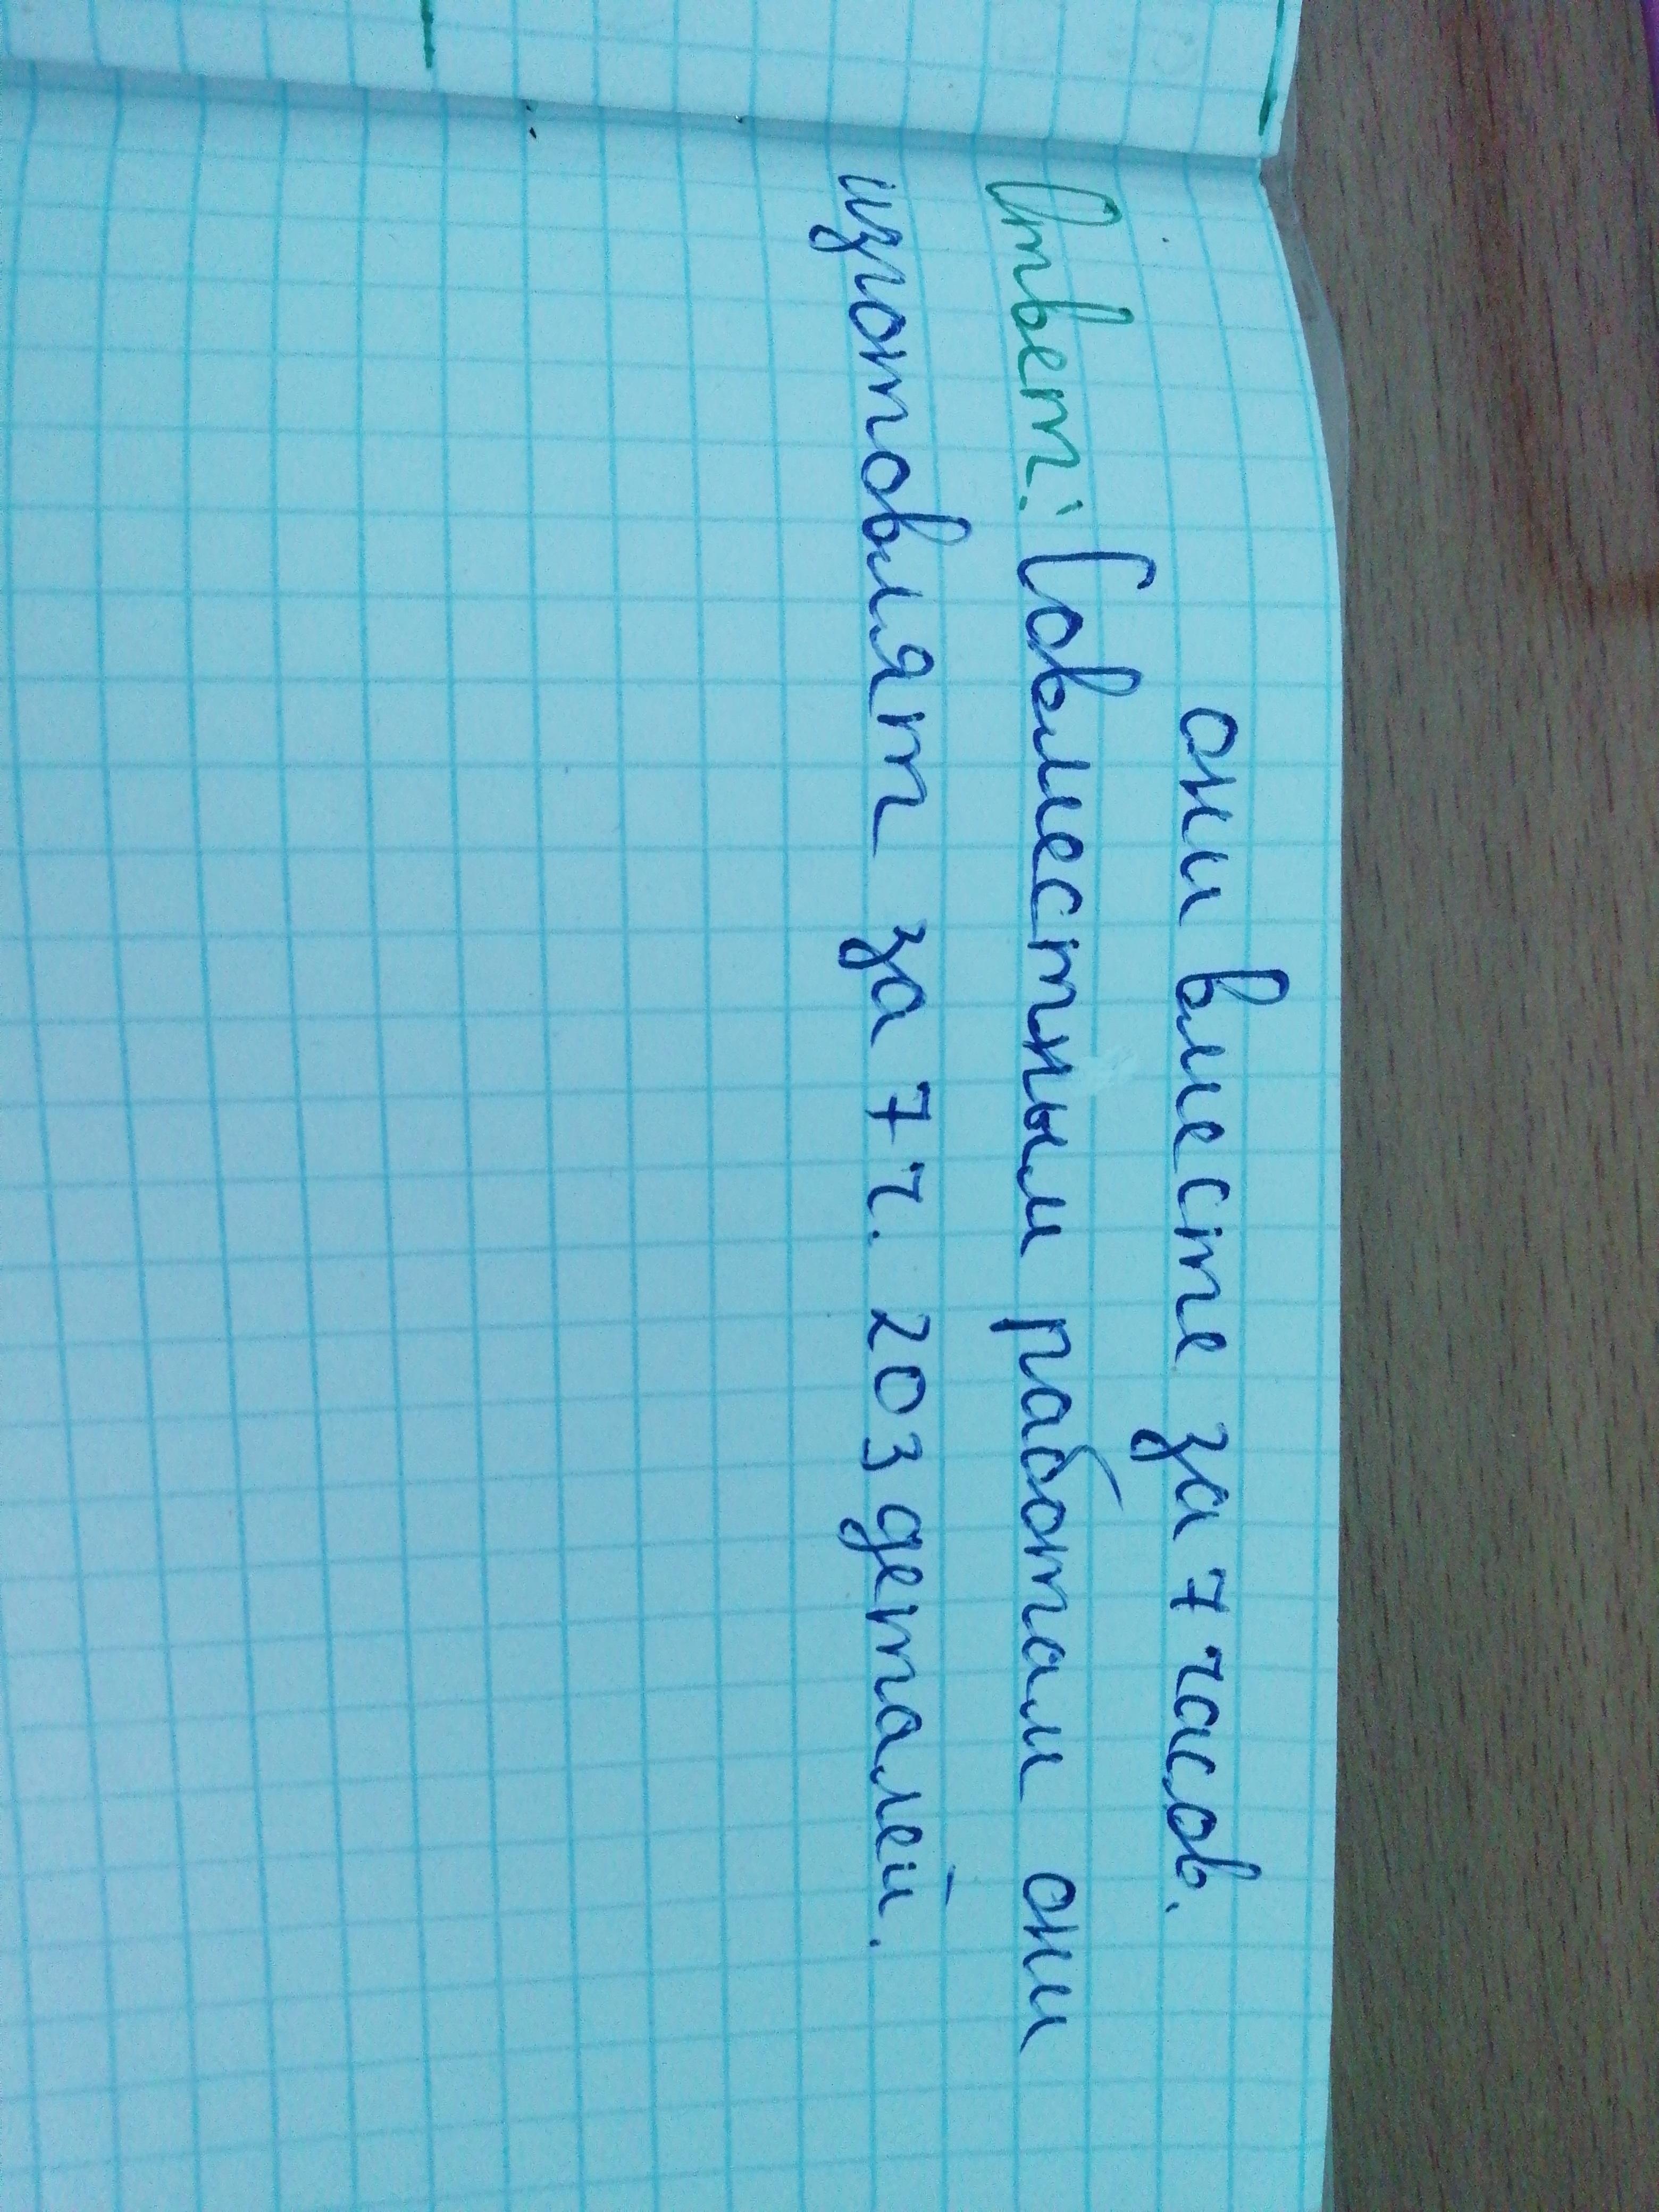 они вместе за 7 часов.
Ответ: Совместным работам они
изготовлят за 7 ч. 203 деталей.